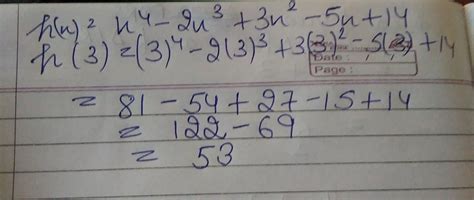 h(x)= x⁴-2x³+3x²-5x+14
h(3)=(3)⁴-2(3)³+3(3)²-5(3)+14
Date :
Page :
= 81-54+27-15+14
= 122-69
= 53